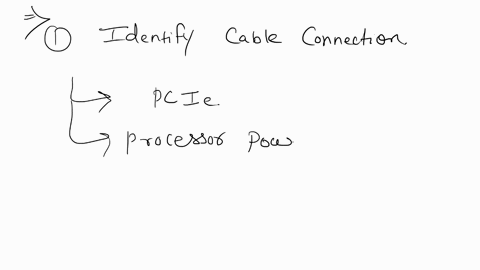 ⇒ ① Identify Cable Connection
→ PCIe
→ Processor Pow